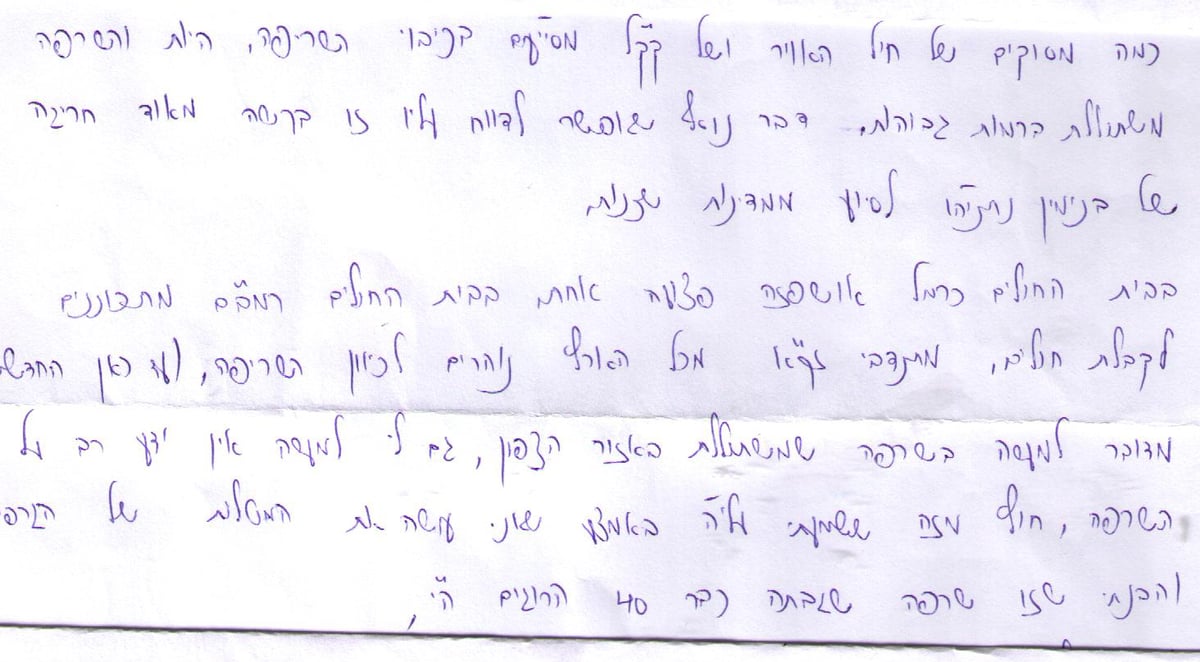 כמה מסוקים של חיל האוויר ושל קק"ל מסייעים בכיבוי השריפה, היות והשרפה
משתוללת ברמות גבוהות. דבר נואף שאפשר לדווח עליו זו בקשה מאוד חריגה
של בנימין נתניהו לסיוע ממדינות שונות.
בבית החולים כרמל אושפזה פצועה אחת, בבית החולים רמב"ם מתכוננים
לקבלת חולים, מתנדבי זק"א מכל הארץ נוהרים לכיוון השריפה, ועד כאן החדשו
מדובר למעשה בשרפה שמשתוללת באזור הצפון, גם לי למעשה אין ידע רב על
השרפה, חוץ מזה ששמעתי עליה באמצע שאני עושה את המטלות של הגרפו
והבנתי שזו שרפה שגבתה כבר 40 הרוגים הי"